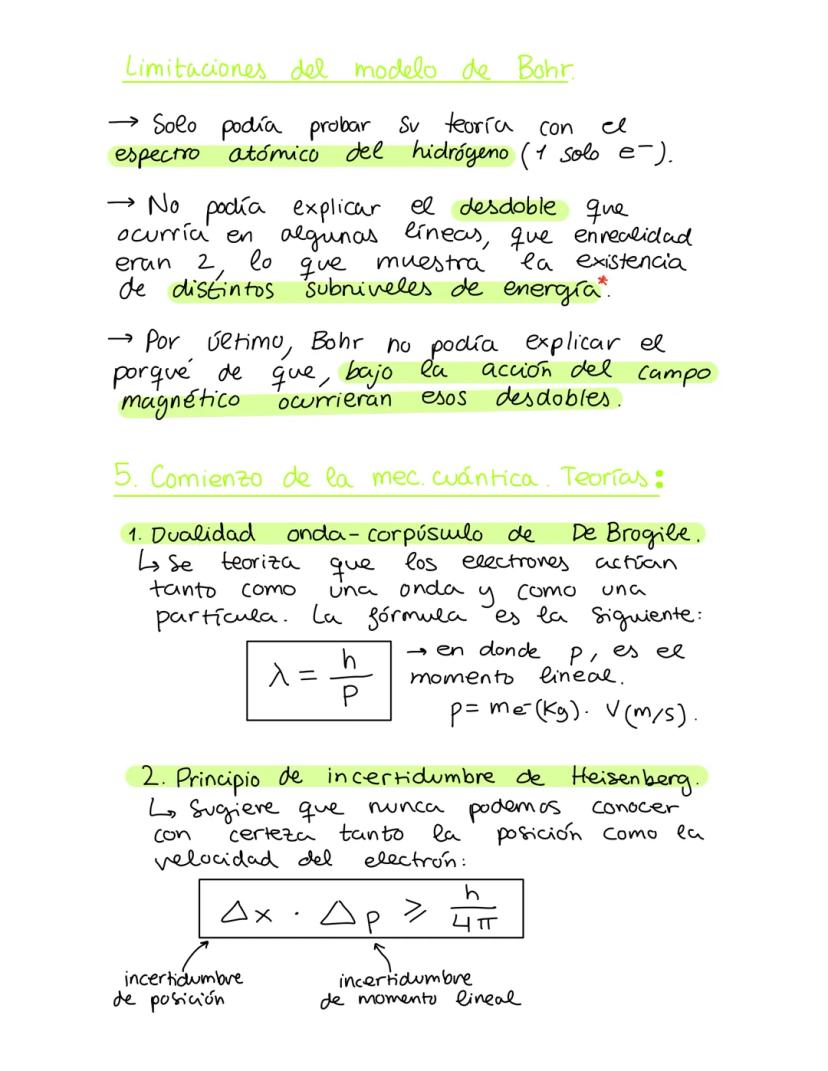 Limitaciones del modelo de Bohr.
→ Solo podía probar su teoría con el
espectro atómico del hidrógeno (1 solo e-).
→ No podía explicar el desdoble que
ocurría en algunas líneas, que enrealidad
eran 2, lo que muestra la existencia
de distintos subniveles de energía*.
→ Por último, Bohr no podía explicar el
porqué de que, bajo la acción del campo
magnético ocurrieran esos desdobles.
5. Comienzo de la mec. cuántica. Teorías:
1. Dualidad onda-corpúsculo de De Brogile.
↳ Se teoriza que los electrones actúan
tanto como una onda y como una
partícula. La fórmula es la siguiente:
λ = h/P → en donde p, es el
momento lineal.
p= me-(Kg). V(m/s).
2. Principio de incertidumbre de Heisenberg.
↳ Sugiere que nunca podemos conocer
con certeza tanto la posición como la
velocidad del electrón:
Δx · Δp ≥ h/4π
incertidumbre incertidumbre
de posición de momento lineal